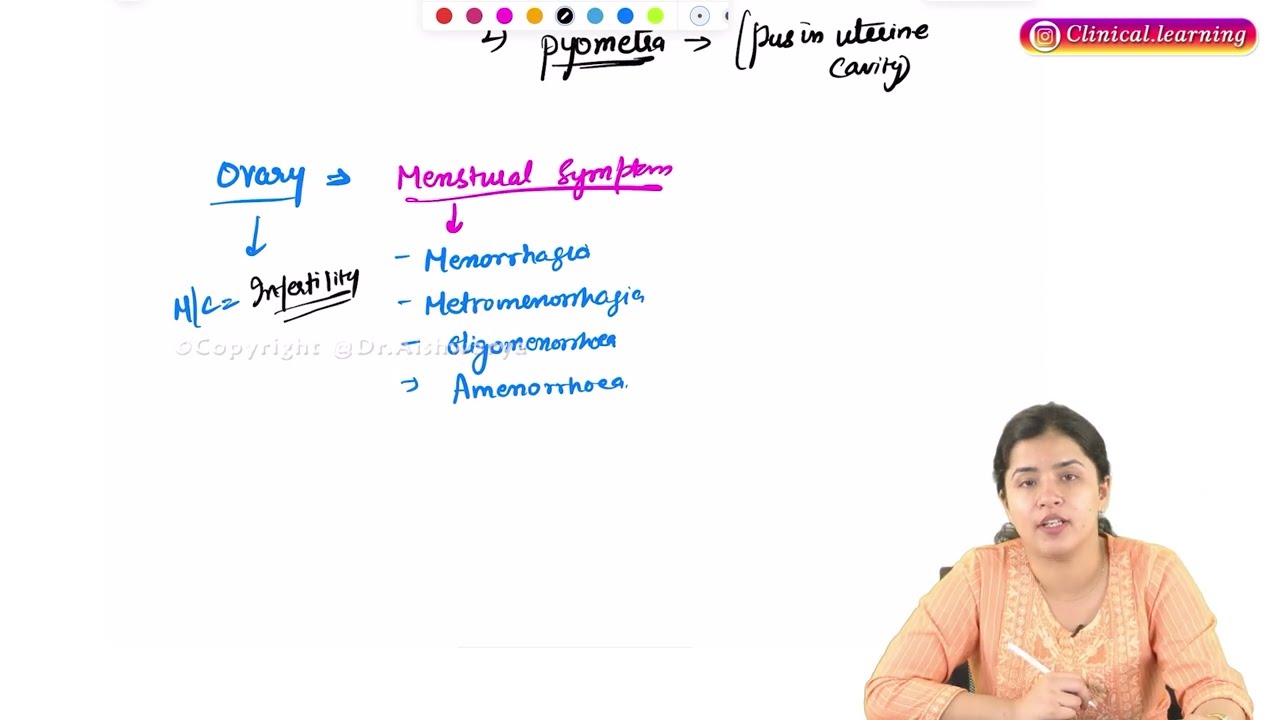 Clinical.learning
↳ pyometra → (pus in uterine
cavity)
Ovary ⇒ Menstural Symptom
- Menorrhagia
M/C = Infertility
- Metromenorrhagia
©Copyright @Dr.Aishwarya
- Oligomenorrhoea
→ Amenorrhoea.